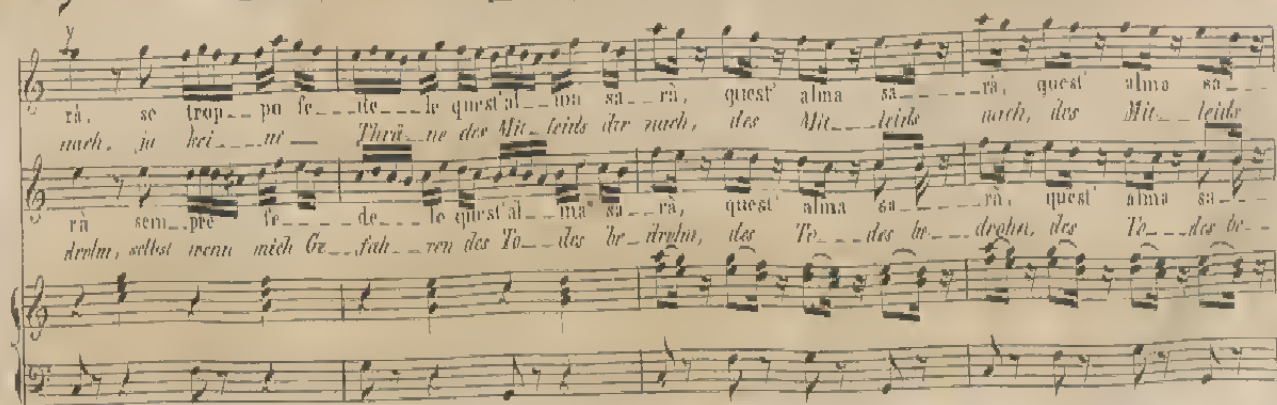 rà, se trop__po fe__de__le quest'al__ma sa__rà, quest' alma sa__rà, quest' alma sa__
nach, ja kei__ne__ Thrä__ne des Mit__leids dir nach, des Mit__leids nach, des Mit__leids
rà sem__pre fe__de__le quest'al__ma sa__rà, quest' alma sa__rà, quest' alma sa__
drohn, selbst wenn mich Ge__fah__ren des To__des be__drohn, des To__des be__drohn, des To__des be__